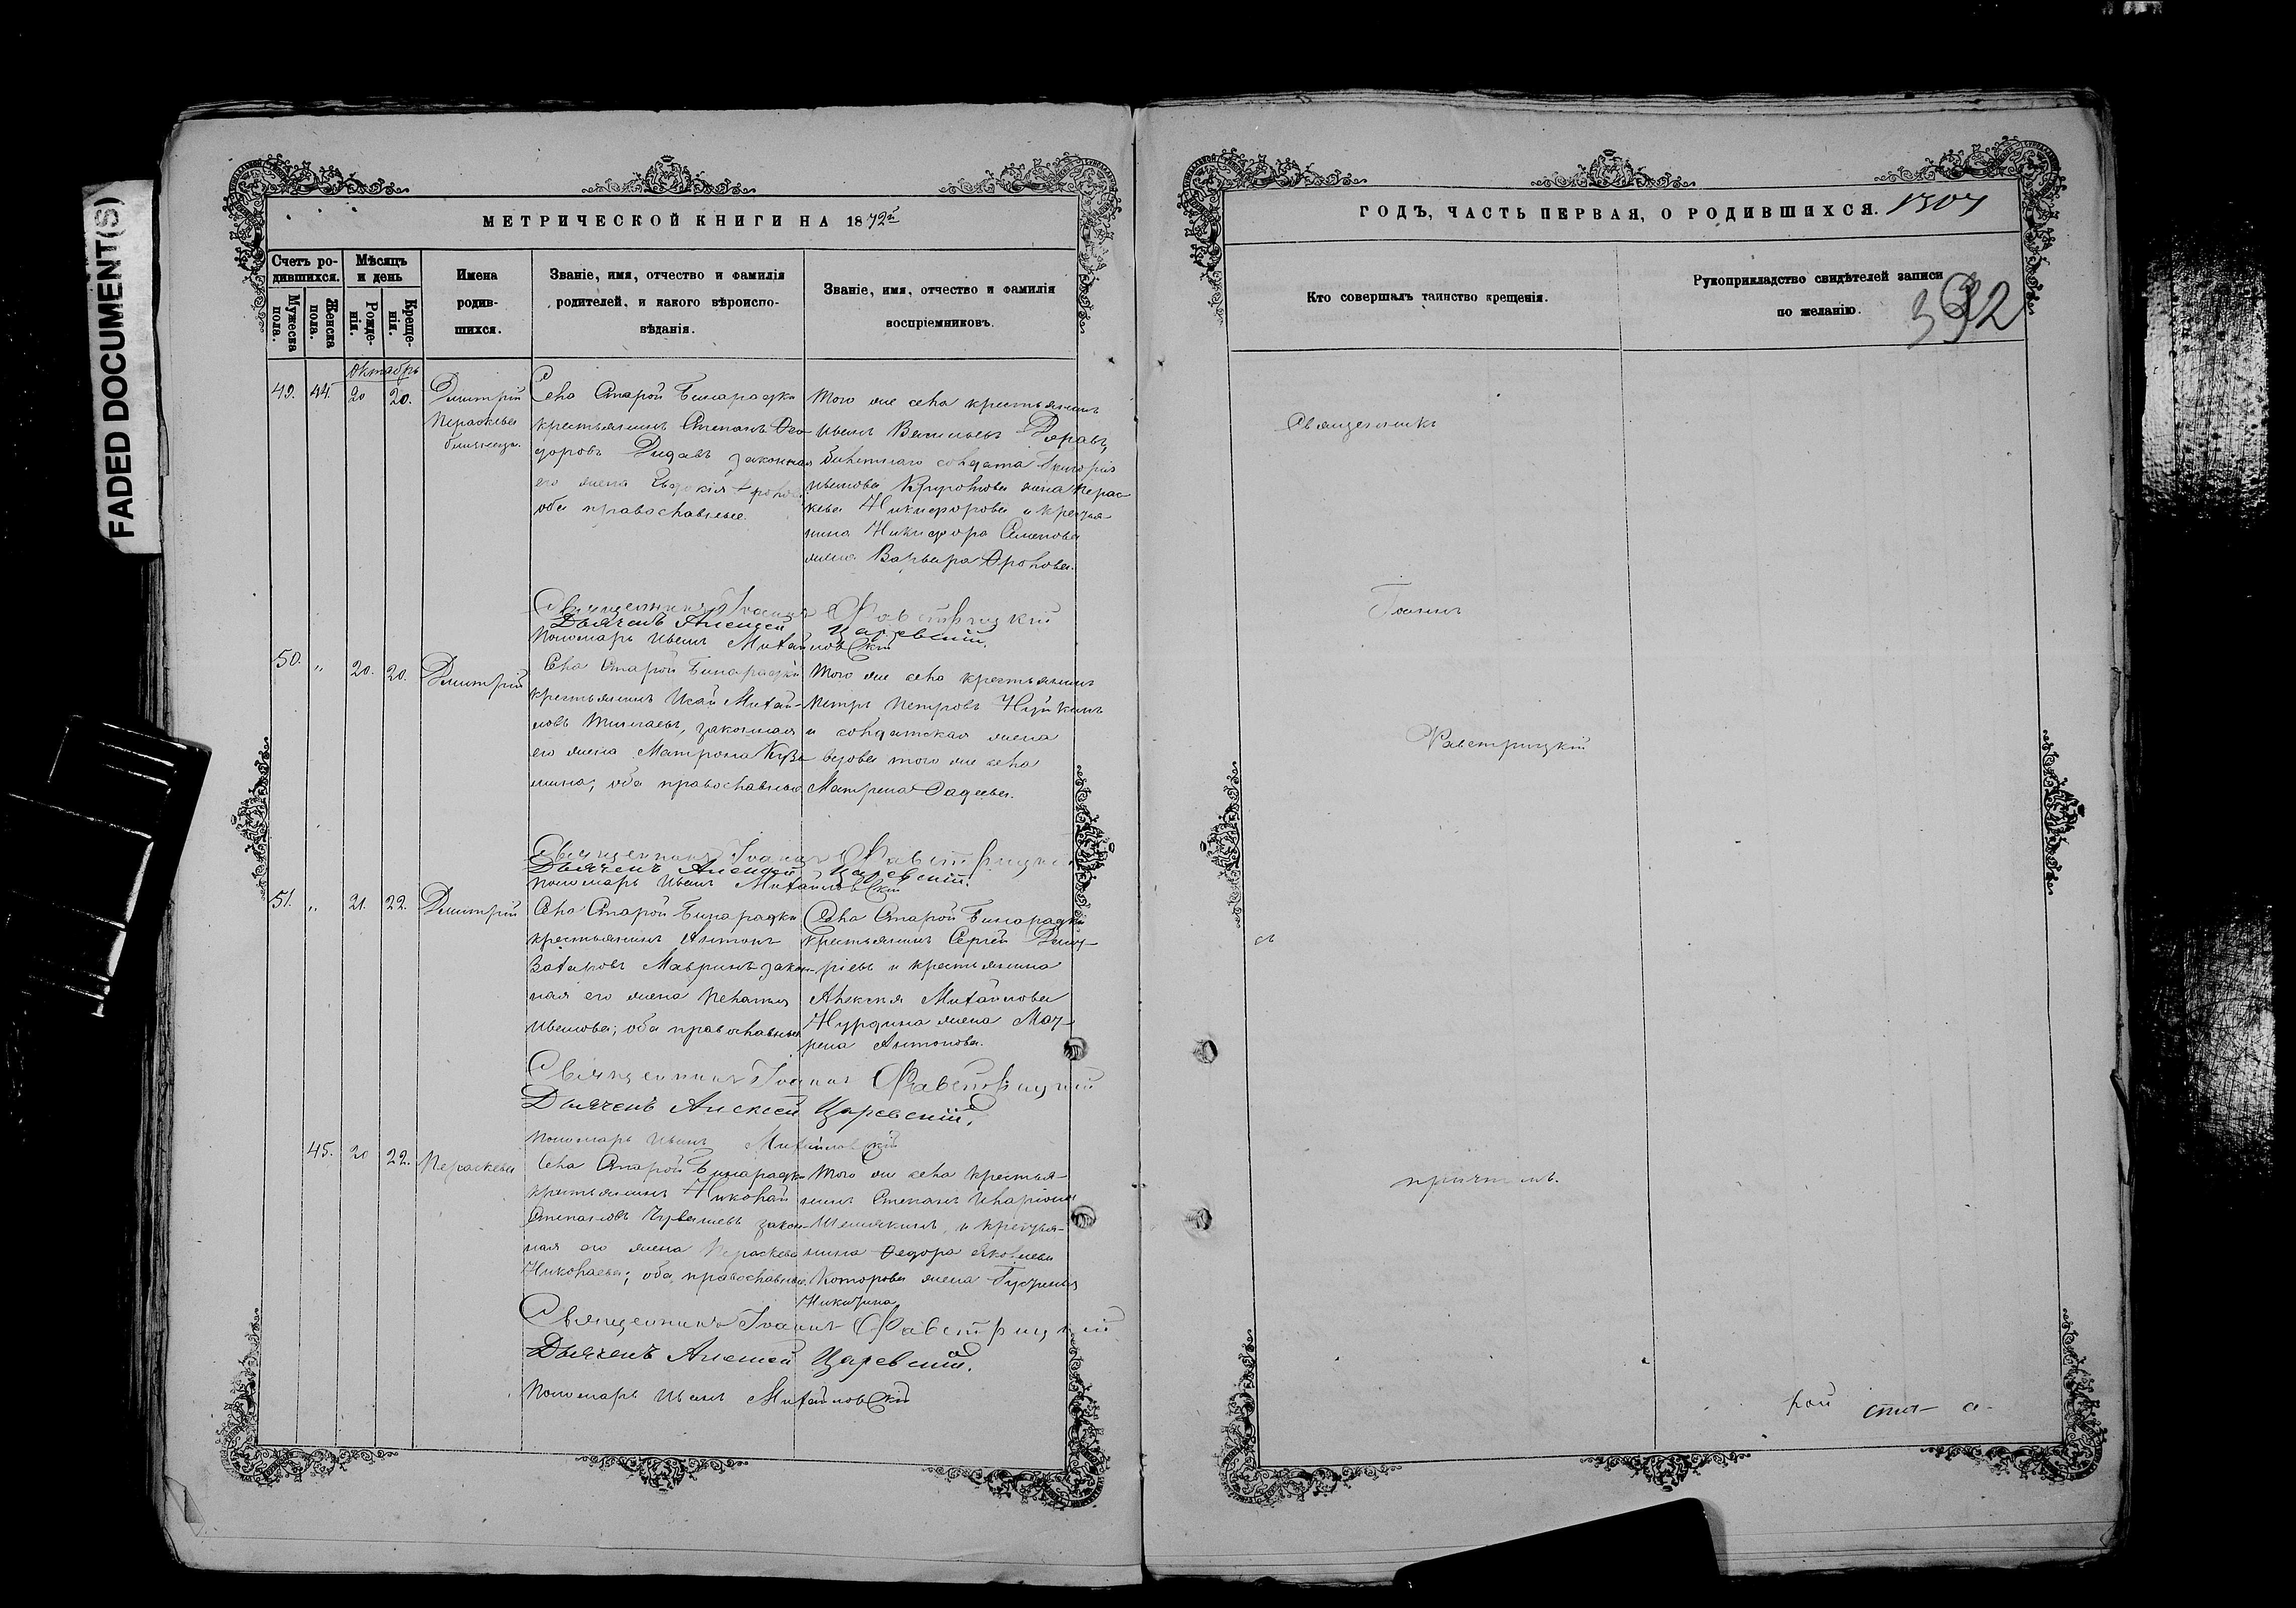 FADED DOCUMENT(S)
МЕТРИЧЕСКОЙ КНИГИ НА 1872й
Счетъ ро-
дившихся.
Мужеска
пола.
Женска
пола.
Мѣсяцъ
и день
Рожде-
нія.
Креще-
нія.
Имена
родив-
шихся.
Званіе, имя, отчество и фамилія
родителей, и какого вѣроиспо-
вѣданія.
Званіе, имя, отчество и фамилія
воспріемниковъ.
Октябрь
49. 44. 20 20.
Димитрій
Параскева
близнецы.
Села Старой Бинарадки
крестьянинъ Степанъ Ѳео-
доровъ законная
его жена Евдокія
оба православные.
Того же села крестьянинъ
Иванъ Васильевъ
билетнаго солдата Григорія
Иванова жена Парас-
кева Никифорова и крестья-
нина Никифора Семенова
жена Варвара Фролова.
Священникъ Іоаннъ Фавстрицкій
Дьячекъ Алексей Царевский.
Пономарь Иванъ Михайловскій
50. „ 20. 20.
Димитрій
Села Старой Бинарадки
крестьянинъ Исай Михай-
ловъ законная
его жена Матрона Кузь-
мина, оба православные
Того же села крестьянинъ
Петръ Петровъ
и солдатская жена
вдова того же села
Матрена Фадеева.
Священникъ Іоаннъ Фавстрицкій
Дьячекъ Алексей Царевский.
Пономарь Иванъ Михайловскій
51. „ 21. 22.
Димитрій
Села Старой Бинарадки
крестьянинъ Антонъ
Захаровъ Мавринъ закон-
ная его жена Пелагия
Иванова; оба православные
Села Старой Бинарадки
крестьянинъ Сергей Димит-
ріевъ и крестьянина
Алексея Михайлова
жена Мат-
рена Антонова.
Священникъ Іоаннъ Фавстрицкій
Дьячекъ Алексей Царевский.
Пономарь Иванъ Михайловскій
45. 20 22.
Параскева
Села Старой Бинарадки
крестьянинъ Николай
Степановъ Чувашевъ закон-
ная его жена Параскева
Николаева; оба православные.
Того же села крестья-
нинъ Степанъ Иларіоновъ
Шешякинъ, и крестья-
нина Федора Яковлева
Которова жена
Никитина
Священникъ Іоаннъ Фавстрицкій
Дьячекъ Алексей Царевский.
Пономарь Иванъ Михайловскій
ГОДЪ, ЧАСТЬ ПЕРВАЯ, О РОДИВШИХСЯ.
Кто совершалъ таинство крещенія.
Рукоприкладство свидѣтелей записи
по желанію.
Священникъ
Іоаннъ
Фавстрицкій
съ
причтомъ.